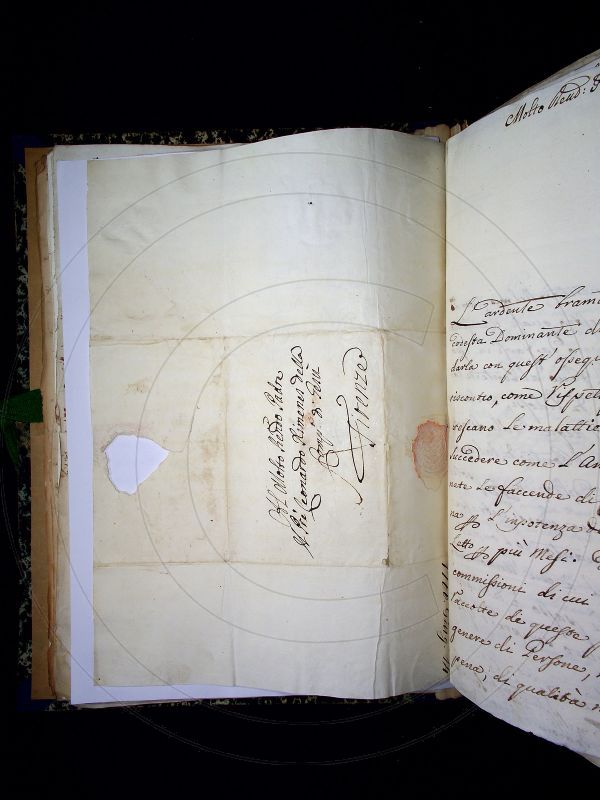 Al Molto Revdo Padre
Leonardo Ximenes della
Comp: di Gesù
Firenze
Molto Revd:
L'ardente brama
cotesta Dominante
darla con quest' osseq
riscontro, come l'ispet
rescano le malattie
succedere come l'An
nete le faccende di
na L'inpotenza
Letto più Mesi.
commissioni di cui
facolte de queste
genere di Persone,
pena, di qualità